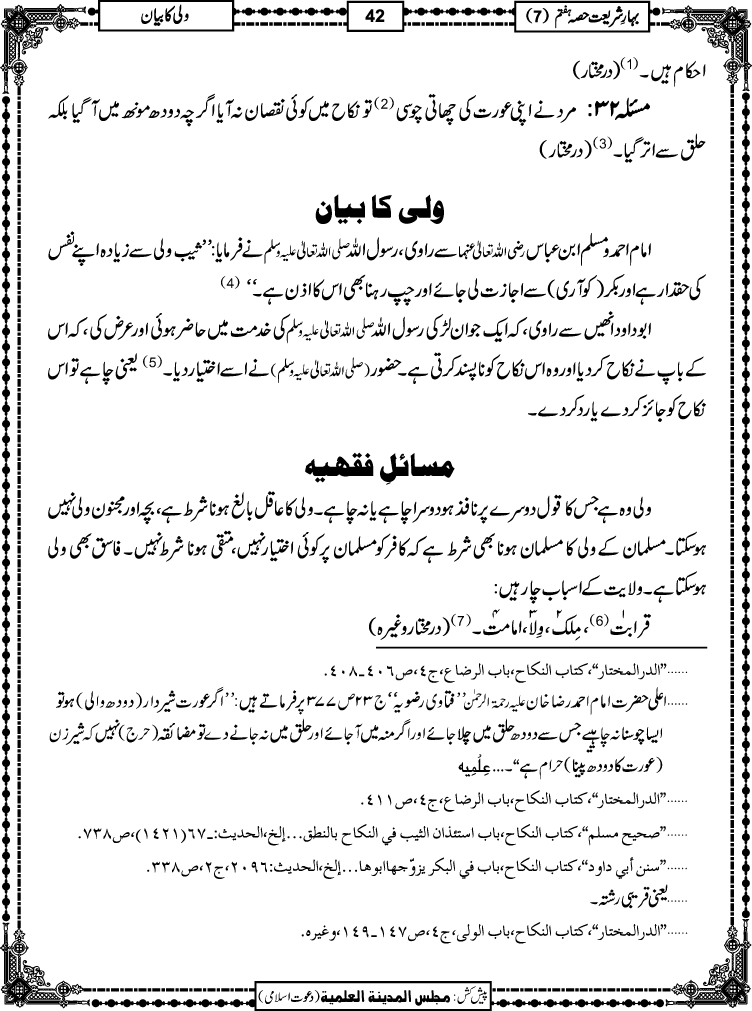 بہارِ شریعت حصہ ہفتم (7)
42
ولی کا بیان
احکام ہیں۔(1) (درمختار)
مسئلہ ۳۲: مرد نے اپنی عورت کی چھاتی چوسی(2) تو نکاح میں کوئی نقصان نہ آیا اگرچہ دودھ مونھ میں آگیا بلکہ
حلق سے اتر گیا۔(3) (درمختار)
ولی کا بیان
امام احمد و مسلم ابن عباس رضی اللہ تعالیٰ عنہما سے راوی، رسول اللہ صلی اللہ تعالیٰ علیہ وسلم نے فرمایا: ’’ثیب ولی سے زیادہ اپنے نفس
کی حقدار ہے اور بکر (کوآری) سے اجازت لی جائے اور چپ رہنا بھی اس کا اذن ہے۔‘‘ (4)
ابوداود انھیں سے راوی، کہ ایک جوان لڑکی رسول اللہ صلی اللہ تعالیٰ علیہ وسلم کی خدمت میں حاضر ہوئی اور عرض کی، کہ اس
کے باپ نے نکاح کردیا اور وہ اس نکاح کو ناپسند کرتی ہے۔ حضور (صلی اللہ تعالیٰ علیہ وسلم) نے اسے اختیار دیا۔(5) یعنی چاہے تو اس
نکاح کو جائز کردے یا رد کردے۔
مسائلِ فقهیه
ولی وہ ہے جس کا قول دوسرے پر نافذ ہو دوسرا چاہے یا نہ چاہے۔ ولی کا عاقل بالغ ہونا شرط ہے، بچہ اور مجنون ولی نہیں
ہوسکتا۔ مسلمان کے ولی کا مسلمان ہونا بھی شرط ہے کہ کافر کو مسلمان پر کوئی اختیار نہیں، متقی ہونا شرط نہیں۔ فاسق بھی ولی
ہوسکتا ہے۔ ولایت کے اسباب چار ہیں:
قرابت۱(6)، مِلک۲، وِلا۳، امامت۴۔(7) (درمختار وغیرہ)
......”الدرالمختار“، کتاب النکاح، باب الرضاع، ج٤، ص٤٠٦ـ٤٠٨.
......اعلیٰ حضرت امام احمد رضا خان علیہ رحمۃ الرحمٰن ’’فتاوی رضویہ‘‘ ج ۲۳ ص ۳۷۷ پر فرماتے ہیں: ’’اگر عورت شیردار (دودھ والی) ہو تو
ایسا چوسنا نہ چاہیے جس سے دودھ حلق میں چلا جائے اور اگر منہ میں آجائے اور حلق میں نہ جانے دے تو مضائقہ (حرج) نہیں کہ شیرِ زن
(عورت کا دودھ پینا) حرام ہے‘‘۔... عِلْمِیه
......”الدرالمختار“، کتاب النکاح، باب الرضاع، ج٤، ص٤١١.
......”صحیح مسلم“، کتاب النکاح، باب استئذان الثیب في النکاح بالنطق...إلخ، الحدیث:ـ٦٧(١٤٢١)، ص٧٣٨.
......”سنن أبي داود“، کتاب النکاح، باب في البکر یزوّجھا ابوھا...إلخ، الحدیث:٢٠٩٦، ج٢، ص٣٣٨.
......یعنی قریبی رشتہ۔
......”الدرالمختار“، کتاب النکاح، باب الولی، ج٤، ص١٤٧ـ١٤٩، وغیرہ.
پیش کش: مجلس المدینة العلمیة (دعوت اسلامی)